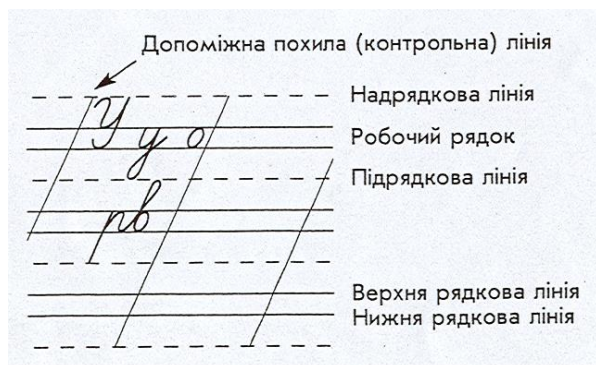 Допоміжна похила (контрольна) лінія
Надрядкова лінія
У у о
Робочий рядок
Підрядкова лінія
рв
Верхня рядкова лінія
Нижня рядкова лінія